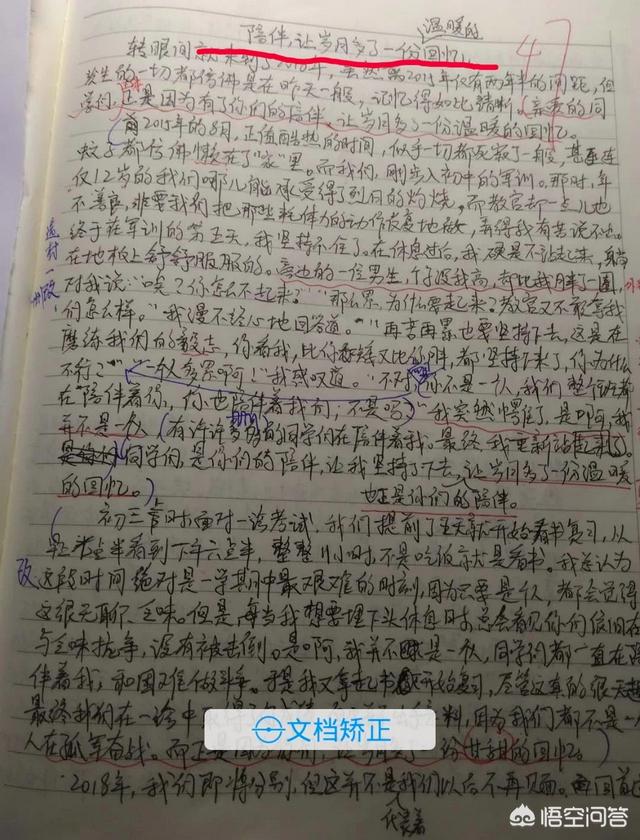 温暖的
陪伴,让岁月多了一份回忆
47
转眼间就来到了2018年,虽然离2015年仅有两年半的间距,但
发生的一切都仿佛是在昨天一般,记忆得如此清晰。亲爱的同
学们,还是因为有了你们的陪伴,让岁月多了一份温暖的回忆。
2015年的8月,正值酷热的时间,似乎一切都死寂了一般,甚至连
蚊子都仿佛懒在了“家”里。而我们,刚步入初中的军训。那时,年
仅12岁的我们哪儿能承受得了烈日的灼烧。而教官却一点儿也
不善良,非要我们把那些耗体力的动作反复地做,弄得我有苦说不出。
终于在军训的第五天,我坚持不住了。在休息过后,我硬是不站起来,躺
在地板上舒舒服服的。旁边的一位男生,个子没我高,却比我胖了一圈,
对我说:“唉?你怎么不起来?”“那么累,为什么要起来?教官又不敢拿我
们怎么样。”我漫不经心地回答道。“再苦再累也要坚持下去,这是在
磨练我们的毅志,你看我,比你矮又比你胖,都坚持下来了,你为什么
不行?”“一个人多累啊!”我感叹道。“不对,你不是一个人,我们整个班都
在陪伴着你,你也陪伴着我们,不是吗?”我突然愣住了,是啊,我
并不是一个人(有许许多多的同学们在陪伴着我。最终,我重新站起来了。
同学们,是你们的陪伴,让我坚持了下去,让岁月多了一份温暖
的回忆。)
也正是你们的陪伴。
初三上时,面对一诊考试,我们提前了五天就开始看书复习,从
早七点半看到下午六点半,整整11小时,不是吃饭就是看书。我并认为
改
这段时间绝对是一学期中最艰难的时刻,因为只要是个人,都会觉得
这很无聊、乏味。但是,每当我想要埋下头休息时,总会看见你们依旧在
与乏味抗争,没有被击倒。是啊,我并不是一个人,同学们都一直在陪
伴着我,和困难做斗争。于是我又拿起书开始复习,尽管这真的很无趣
最终我们在一诊中
料,因为我们都不是一个
人在孤军奋战。而正是
份甘甜的回忆。
2018年,我们即将分别,但这并不是我们以后不再见面。再回首
代表着
文档矫正
悟空问答